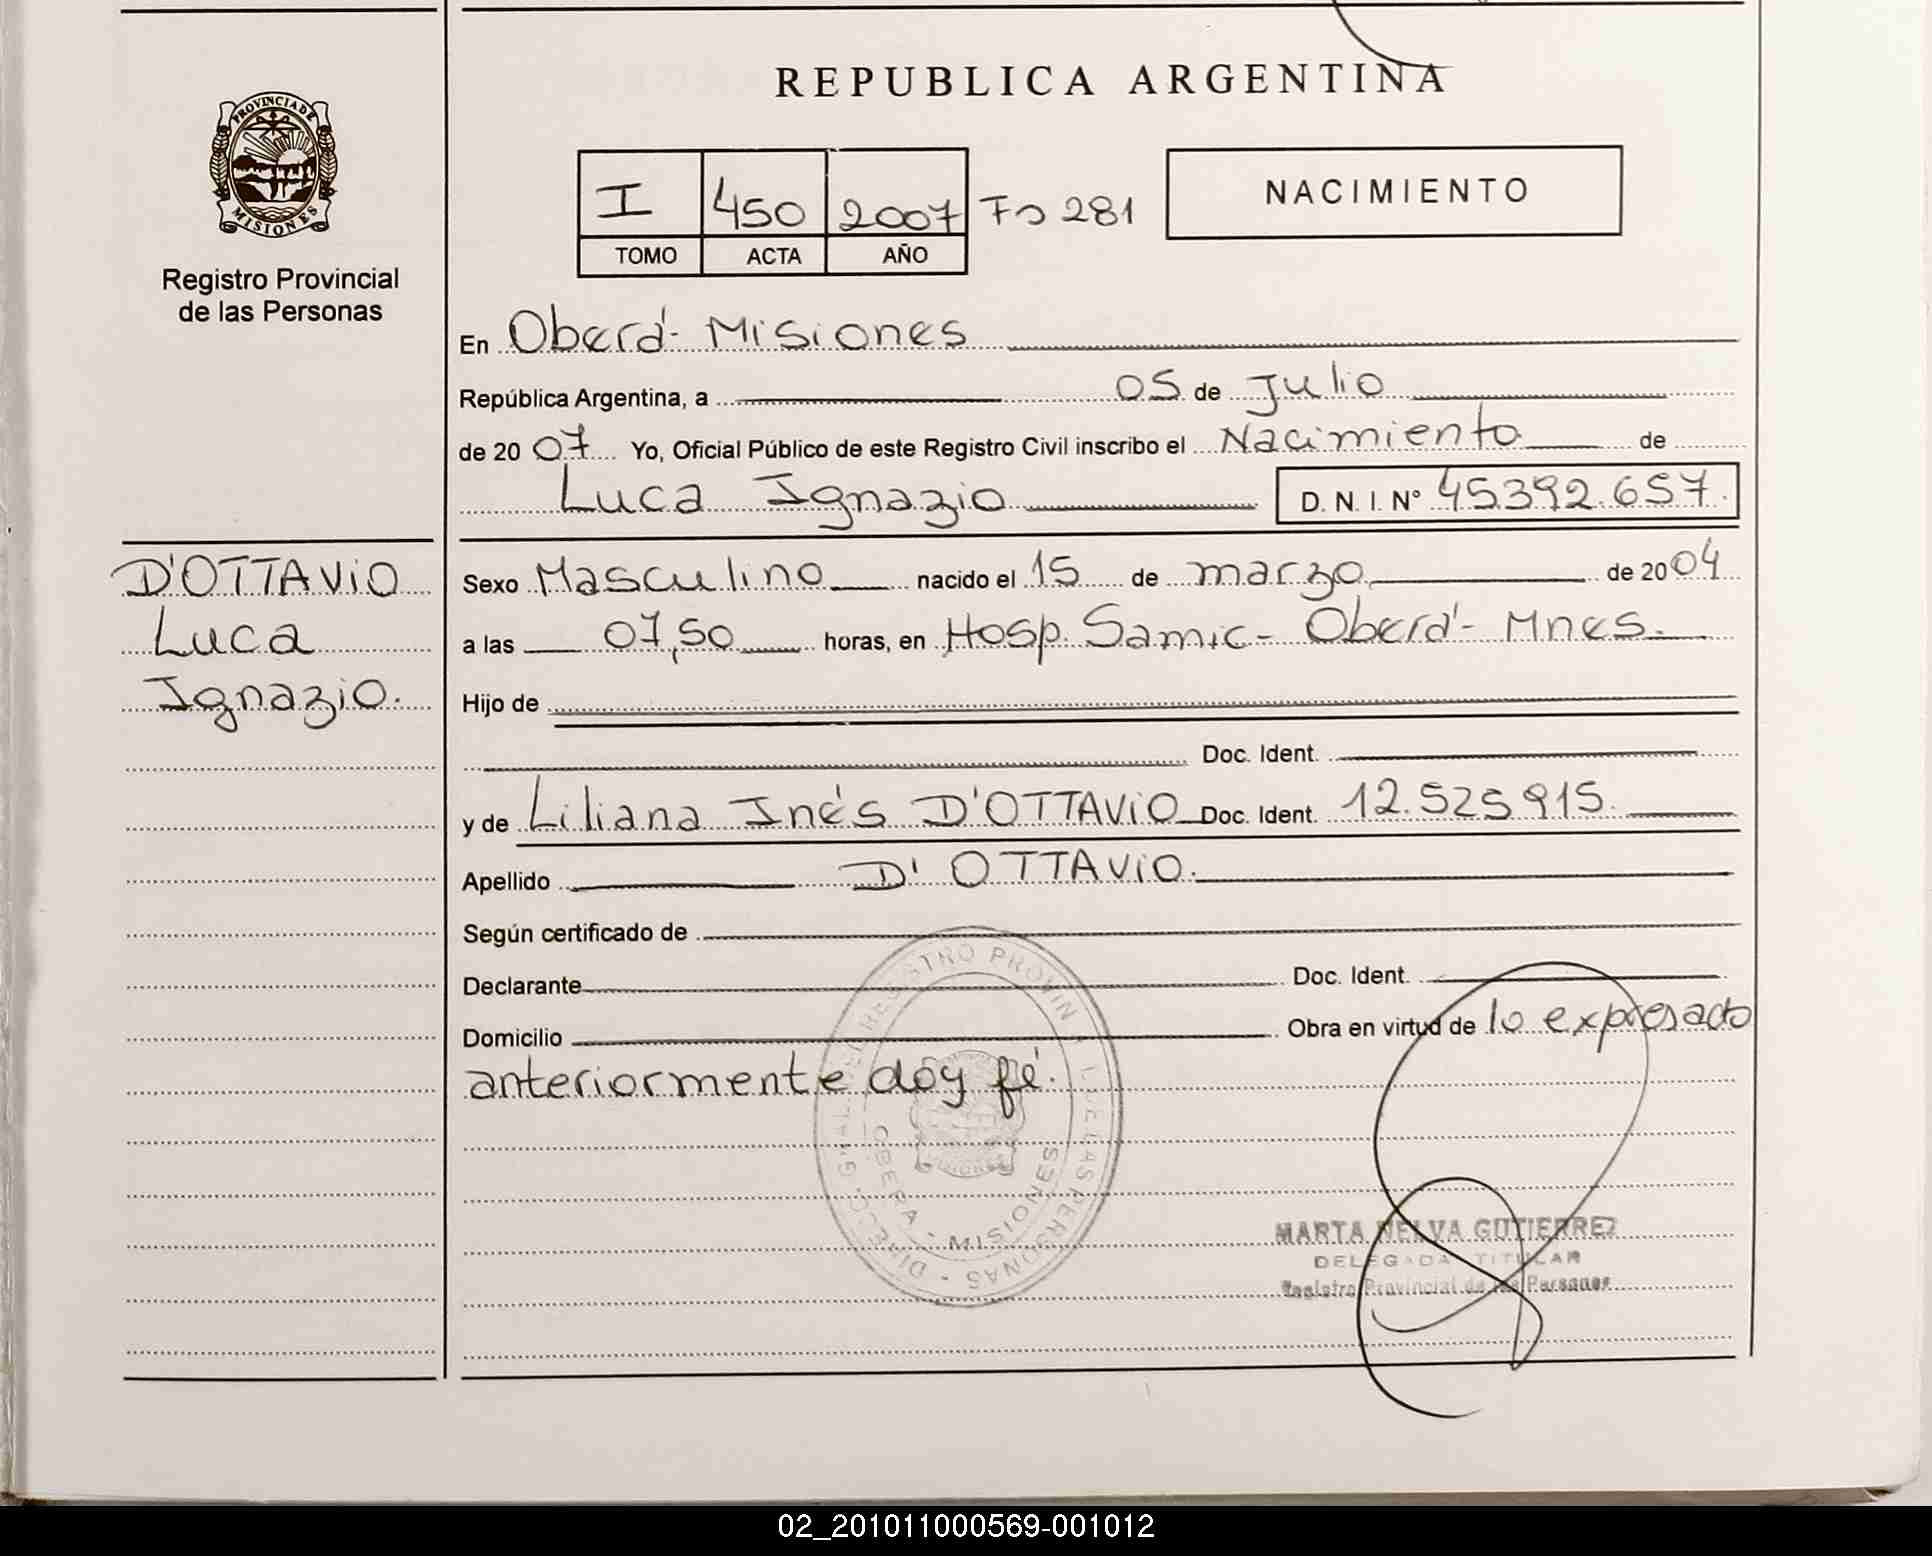 REPUBLICA ARGENTINA
PROVINCIA DE
MISIONES
Registro Provincial
de las Personas
I 450 2007 Fo 281
TOMO ACTA AÑO
NACIMIENTO
En Oberá - Misiones
República Argentina, a 05 de Julio
de 20 07 Yo, Oficial Público de este Registro Civil inscribo el Nacimiento de
Luca Ignazio D. N. I. N° 45392.657.
D'OTTAVIO
Luca
Ignazio.
Sexo Masculino nacido el 15 de marzo de 20 04
a las 07,50 horas, en Hosp. Samic - Oberá - Mnes.
Hijo de
Doc. Ident.
y de Liliana Inés D'OTTAVIO Doc. Ident. 12.525915.
Apellido D' OTTAVIO.
Según certificado de
Declarante Doc. Ident.
Domicilio Obra en virtud de lo expresado
anteriormente doy fé.
REGISTRO PROVIN DE LAS PERSONAS
OBERA - MISIONES
MISIONES
MARTA NELVA GUTIERREZ
DELEGADA TITULAR
Registro Provincial de las Personas
02_201011000569-001012